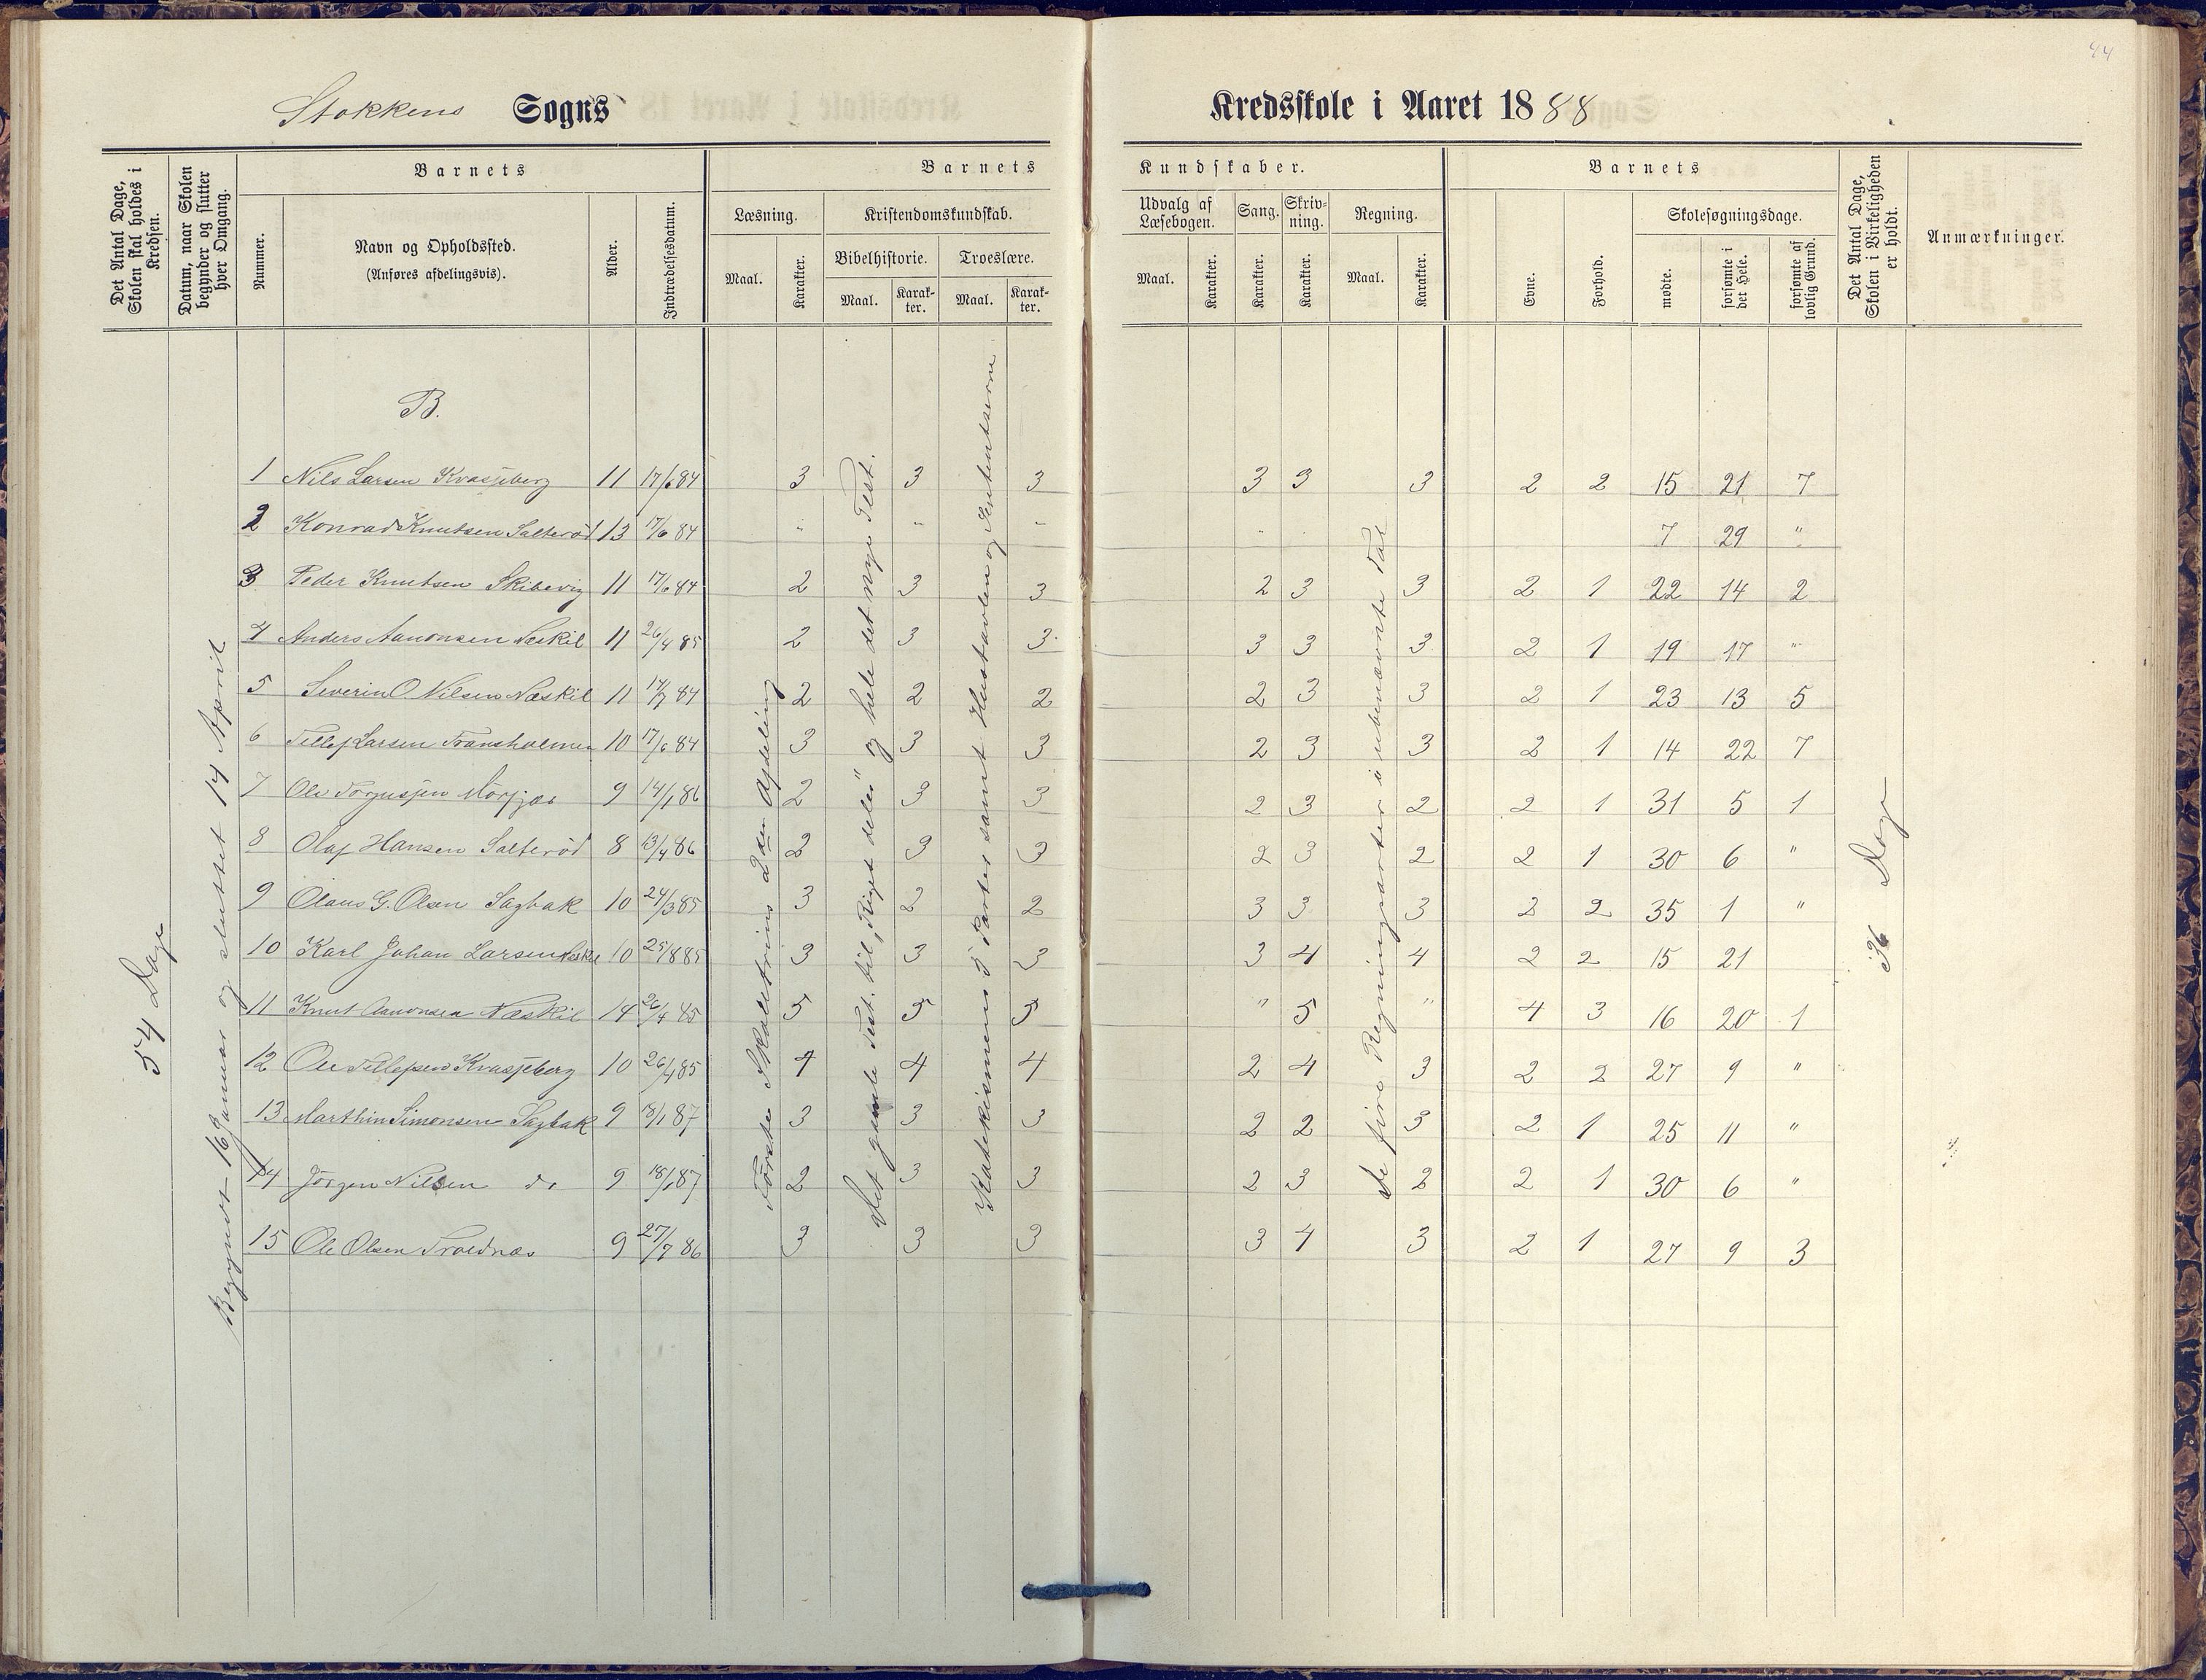 44
Stokkens Sogns Kredsskole i Aaret 1888
Det Antal Dage, Skolen skal holdes i Kredsen.
Datum, naar Skolen begynder og slutter hver Omgang.
Barnets
Nummer.
Navn og Opholdssted.
(Anføres afdelingsvis).
Alder.
Indtrædelsesdatum.
Barnets Kundskaber.
Læsning.
Maal.
Karakter.
Kristendomskundskab.
Bibelhistorie.
Maal.
Karakter.
Troeslære.
Maal.
Karakter.
Udvalg af Læsebogen.
Maal.
Karakter.
Sang.
Karakter.
Skrivning.
Karakter.
Regning.
Maal.
Karakter.
Barnets
Evne.
Forhold.
Skolesøgningsdage.
mødte.
forsømte i det Hele.
forsømte af lovlig Grund.
Det Antal Dage, Skolen i Virkeligheden er holdt.
Anmærkninger.
54 Dage
Begyndt 16 Januar og sluttet 14 April
B.
Første Skoletrins 2den Afdeling
Det gamle Test. til "Riget deles" og hele det nye Test.
Katekismens 5 Parter samt Hustavlen og Sententserne
De fire Regningsarter i ubenævnte Tal
36 Dage
1 Nils Larsen Kvasjeberg 11 17/6 84 3 3 3 3 3 3 2 2 15 21 7
2 Konrad Knutsen Salterød 13 17/6 84 " " " " 7 29 "
3 Peder Knutsen Skibevig 11 17/6 84 2 3 3 2 3 3 2 1 22 14 2
4 Anders Aanonsen Næskil 11 26/4 85 2 3 3 3 3 3 2 1 19 17 "
5 Severin O Nilsen Næskil 11 14/7 84 2 2 2 2 3 3 2 1 23 13 5
6 Tellef Larsen Transholmen 10 17/6 84 3 3 3 2 3 3 2 1 14 22 7
7 Ole Torjusjen 9 14/1 86 2 3 3 2 3 2 2 1 31 5 1
8 Olaf Hansen Salterød 8 13/4 86 2 3 3 2 3 2 2 1 30 6 "
9 Olaus G. Olsen Sagbak 10 24/3 85 3 2 2 3 3 3 2 2 35 1 "
10 Karl Johan Larsen 10 25/8 85 3 3 3 3 4 4 2 2 15 21
11 Knut Aanonsen Næskil 14 26/4 85 5 5 5 " 5 " 4 3 16 20 1
12 Ole Tellefsen Kvasjeberg 10 26/4 85 4 4 4 2 4 3 2 2 27 9 "
13 Marthin Simonsen Sagbak 9 18/1 87 3 3 3 2 2 3 2 1 25 11 "
14 Jörgen Nilsen do 9 18/1 87 2 3 3 2 3 2 2 1 30 6 "
15 Ole Olsen Troldnæs 9 27/7 86 3 3 3 3 4 3 2 1 27 9 3